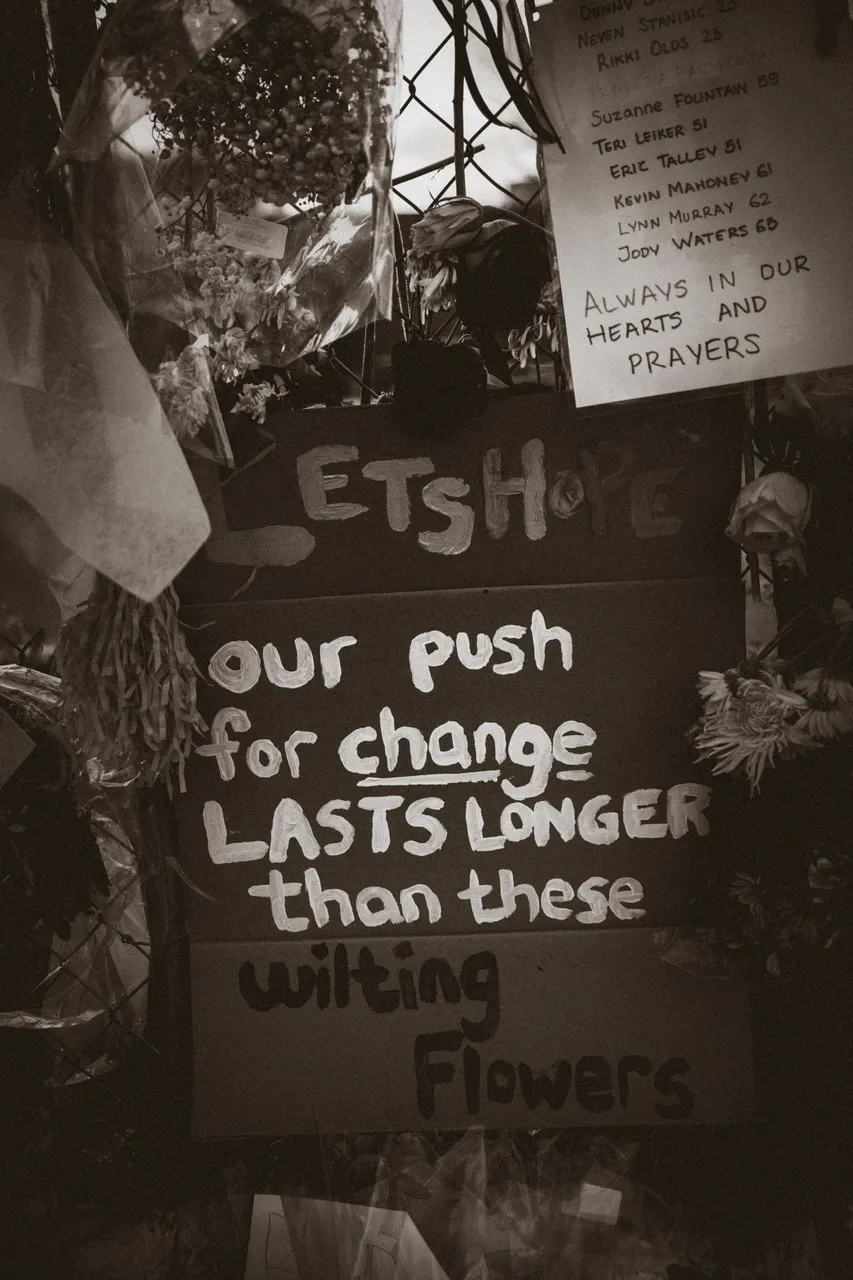 DENNY
NEVEN STANISIC 23
RIKKI OLDS 25
SUZANNE FOUNTAIN 59
TERI LEIKER 51
ERIC TALLEY 51
KEVIN MAHONEY 61
LYNN MURRAY 62
JODY WATERS 65
ALWAYS IN OUR
HEARTS AND
PRAYERS
LETS HOPE
our push
for change
LASTS LONGER
than these
wilting
Flowers